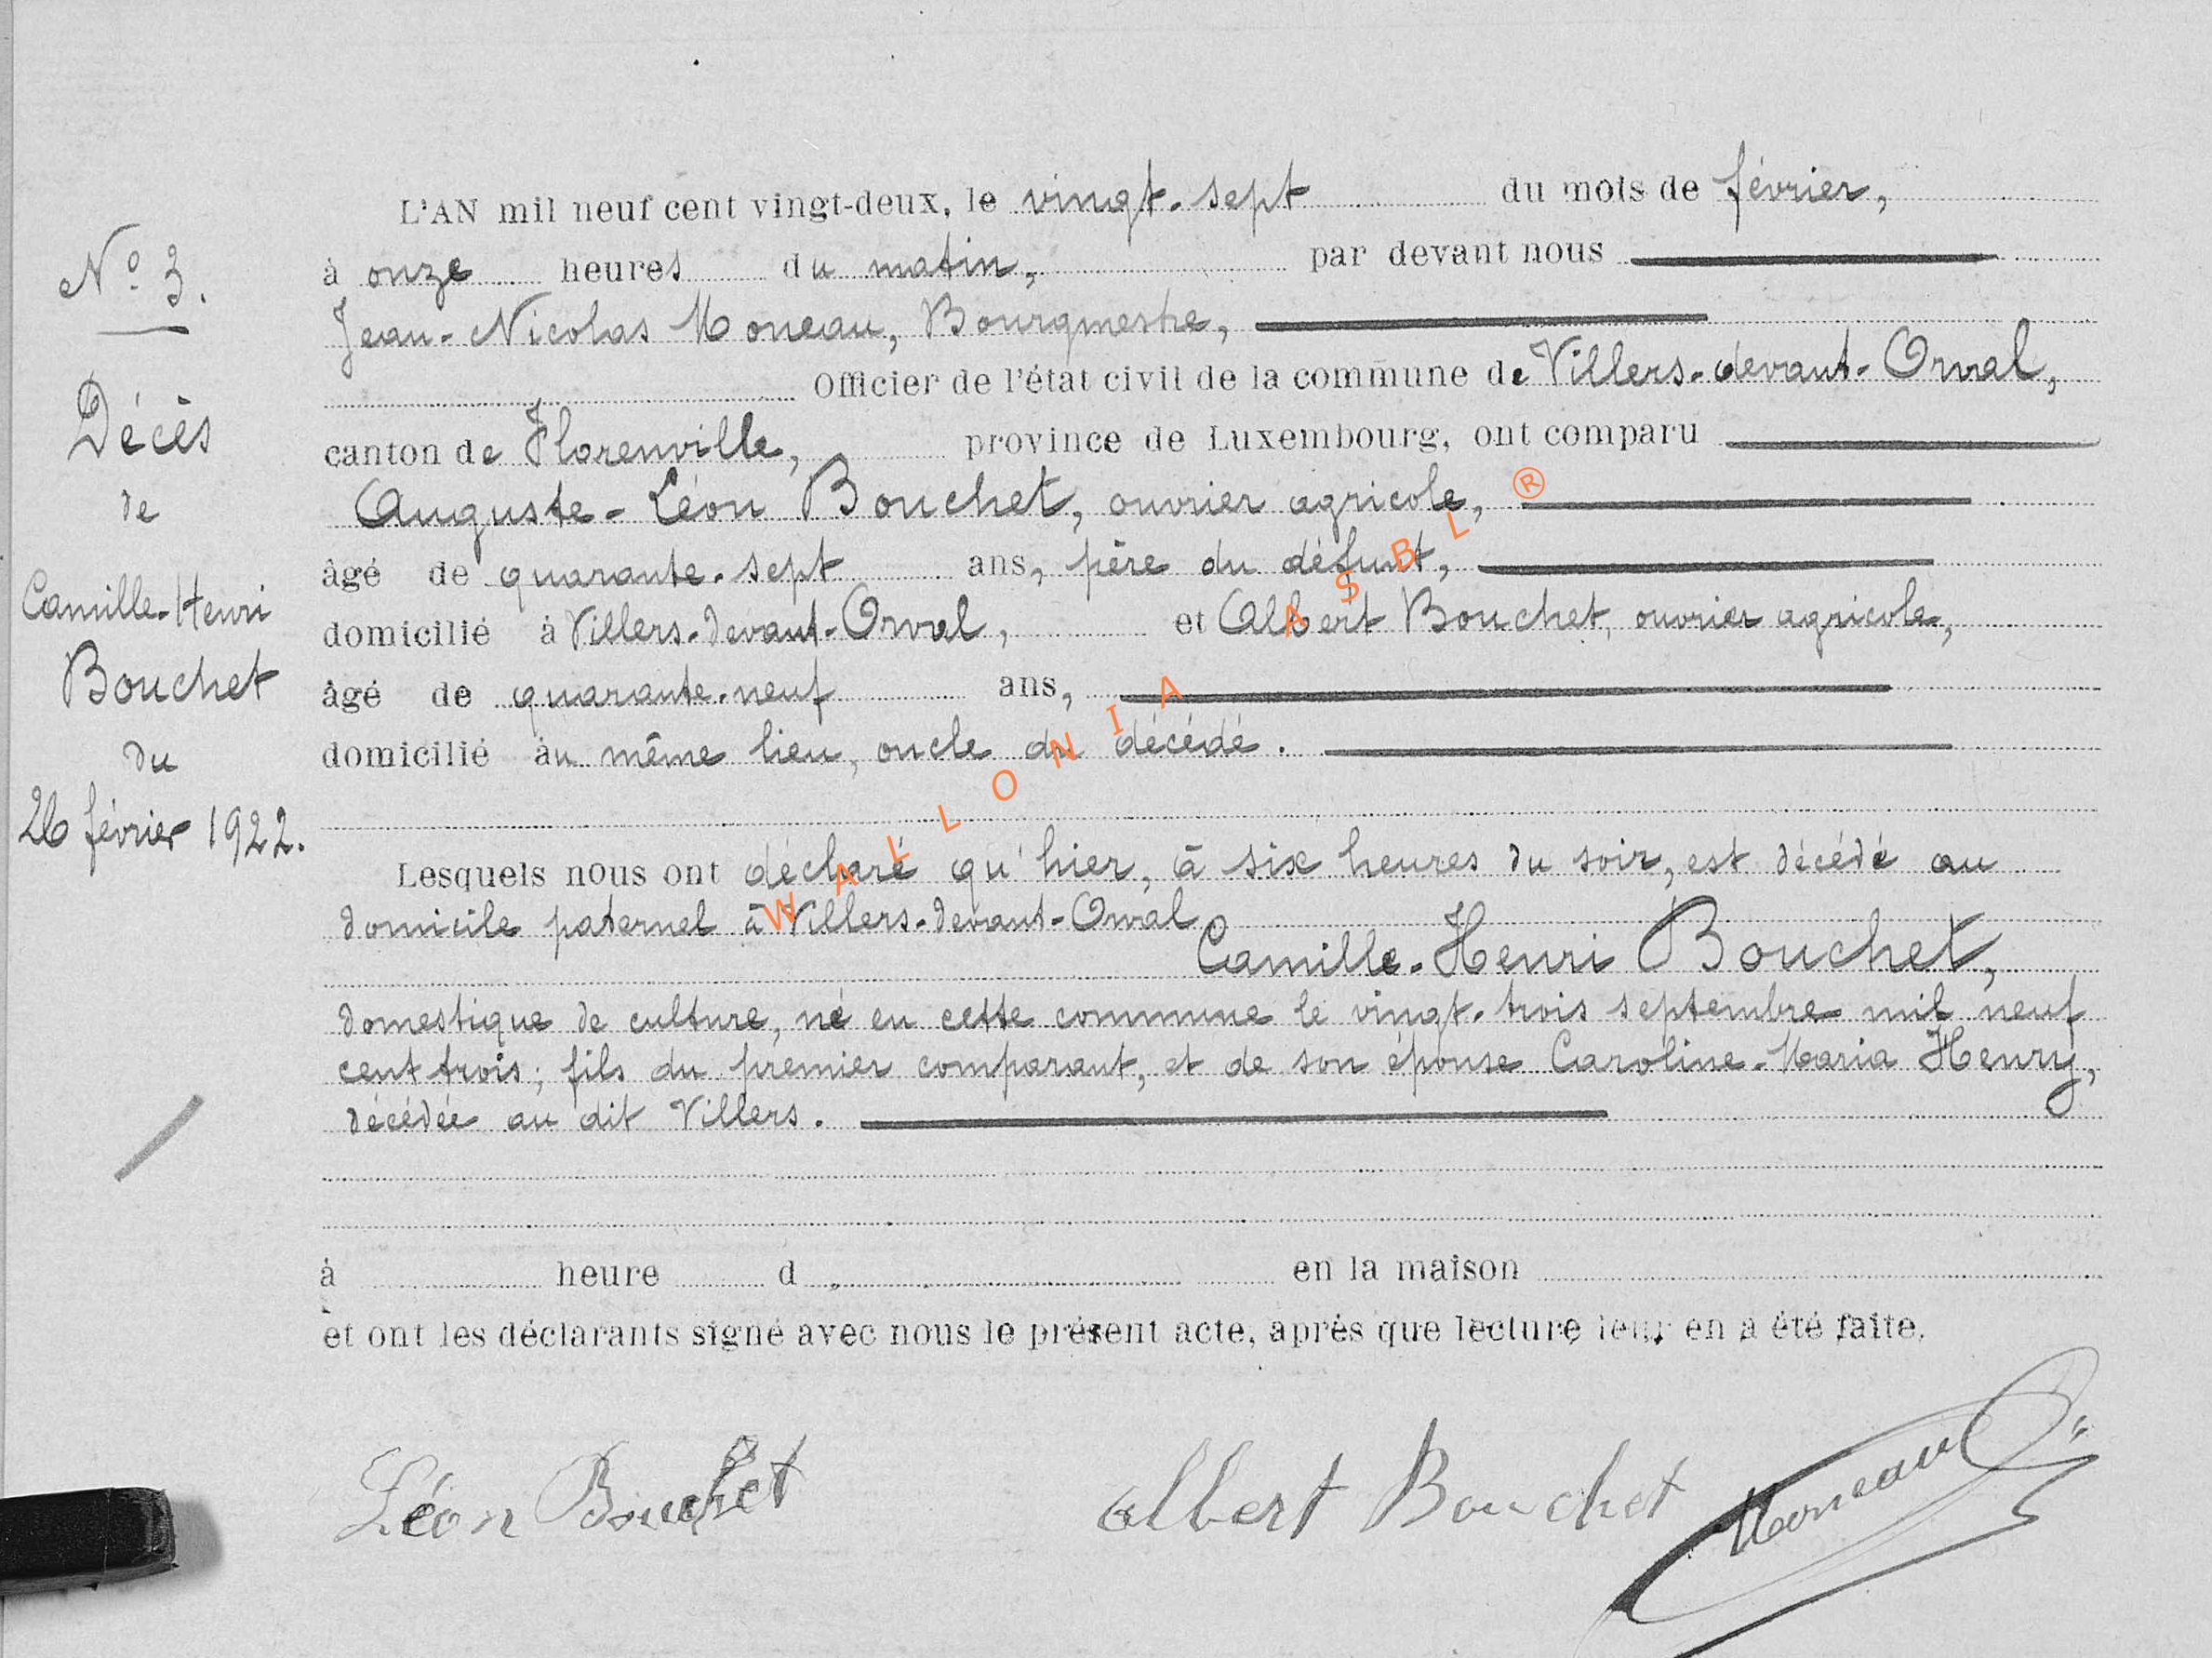 L'AN mil neuf cent vingt-deux, le vingt-sept du mois de février,
à onze heures du matin, par devant nous
Jean-Nicolas Moneau, Bourgmestre,
Officier de l'état civil de la commune de Villers-devant-Orval,
canton de Florenville, province de Luxembourg, ont comparu
Auguste-Léon Bouchet, ouvrier agricole,
âgé de quarante-sept ans, père du défunt,
domicilié à Villers-devant-Orval, et Albert Bouchet, ouvrier agricole,
âgé de quarante-neuf ans,
domicilié au même lieu, oncle du décédé.
Lesquels nous ont déclaré qu'hier, à six heures du soir, est décédé au
domicile paternel à Villers-devant-Orval
Camille-Henri Bouchet,
domestique de culture, né en cette commune le vingt-trois septembre mil neuf
cent trois; fils du premier comparant, et de son épouse Caroline-Maria Henry,
décédée au dit Villers.
à heure d en la maison
et ont les déclarants signé avec nous le présent acte, après que lecture leur en a été faite.
Léon Bouchet
Albert Bouchet
Moneau
N° 3.
Décès
de
Camille-Henri
Bouchet
du
26 février 1922.
WALLONIA ASBL ®